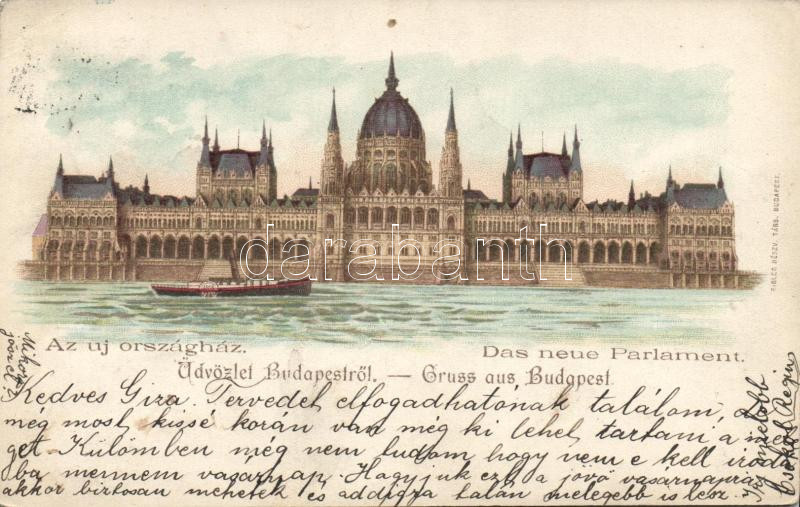 Az uj országház.
Das neue Parlament.
Üdvözlet Budapestről. — Gruss aus Budapest.
RIGLER RÉSZV. TÁRS. BUDAPEST.
darabanth
Kedves Giza. Tervedet elfogadhatónak találom, de
még most kissé korán van még ki lehet tartani a me
get. Külömben még nem tudom hogy nem e kell irodá
ba mennem vasárnap. Hagyjuk ezt a jövő vasárnapra
akkor biztosan mehetek és addigra talán melegebb is lesz.
Mikor
jössz!?
Irj mielőbb
Csókol Regin